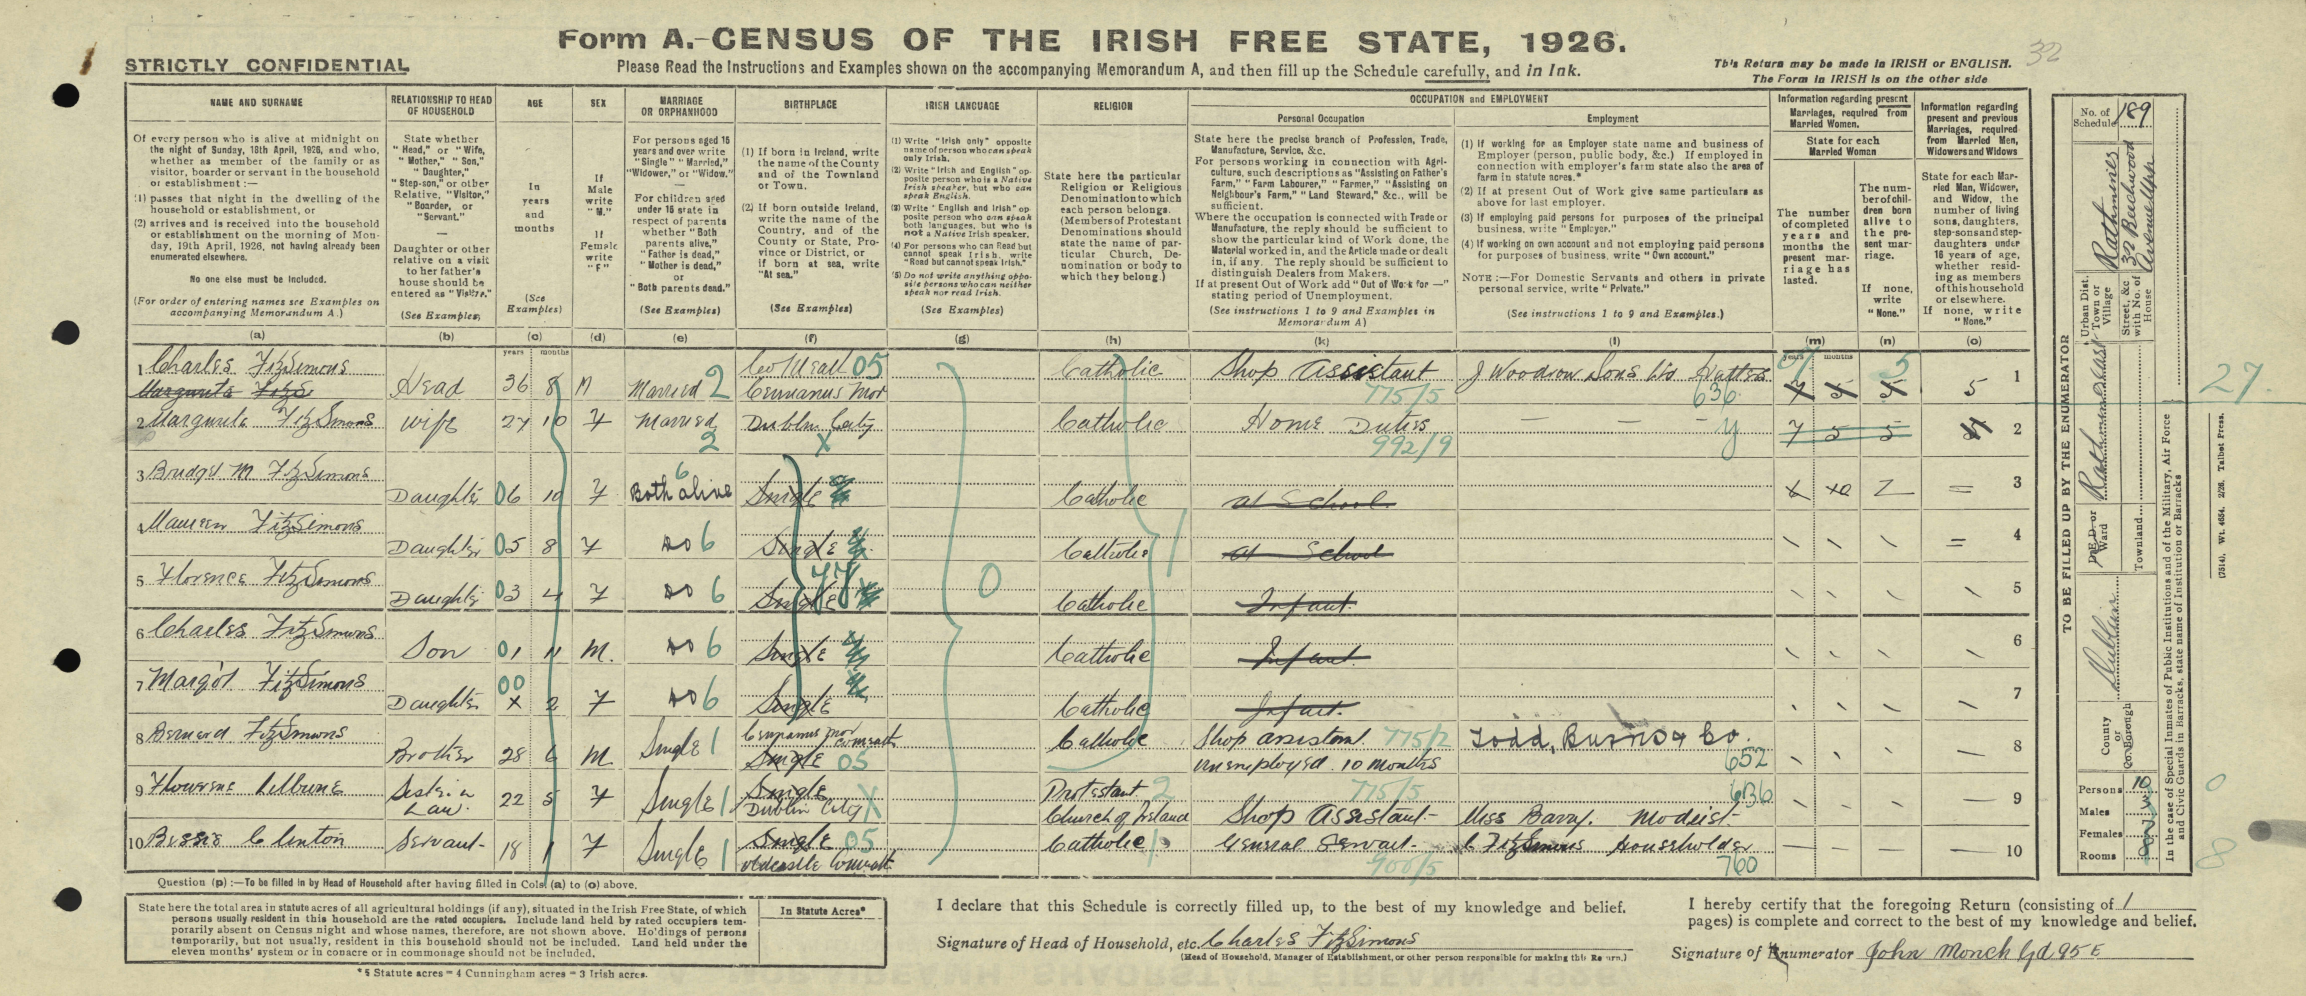 Form A.-CENSUS OF THE IRISH FREE STATE, 1926.
32
STRICTLY CONFIDENTIAL
Please Read the Instructions and Examples shown on the accompanying Memorandum A, and then fill up the Schedule carefully, and in Ink.
This Return may be made in IRISH or ENGLISH.
The Form in IRISH is on the other side
NAME AND SURNAME
Of every person who is alive at midnight on
the night of Sunday, 18th April, 1926, and who,
whether as member of the family or as
visitor, boarder or servant in the household
or establishment :—
(1) passes that night in the dwelling of the
household or establishment, or
(2) arrives and is received into the household
or establishment on the morning of Mon-
day, 19th April, 1926, not having already been
enumerated elsewhere.
No one else must be included.
(For order of entering names see Examples on
accompanying Memorandum A.)
(a)
RELATIONSHIP TO HEAD
OF HOUSEHOLD
State whether
"Head," or "Wife,
"Mother," "Son,"
"Daughter,"
"Step-son," or other
Relative, "Visitor,"
"Boarder, or
"Servant."
Daughter or other
relative on a visit
to her father's
house should be
entered as "Visitor."
(See Examples)
(b)
AGE
In
years
and
months
(See
Examples)
(c)
SEX
If
Male
write
"M."
If
Female
write
"F"
(d)
MARRIAGE
OR ORPHANHOOD
For persons aged 15
years and over write
"Single" "Married,"
"Widower," or "Widow."
For children aged
under 15 state in
respect of parents
whether "Both
parents alive,"
"Father is dead,"
"Mother is dead,"
or
"Both parents dead."
(See Examples)
(e)
BIRTHPLACE
(1) If born in Ireland, write
the name of the County
and of the Townland
or Town.
(2) If born outside Ireland,
write the name of the
Country, and of the
County or State, Pro-
vince or District, or
if born at sea, write
"At sea."
(See Examples)
(f)
IRISH LANGUAGE
(1) Write "Irish only" opposite
name of person who can speak
only Irish.
(2) Write "Irish and English" op-
posite person who is a Native
Irish speaker, but who can
speak English.
(3) Write "English and Irish" op-
posite person who can speak
both languages, but who is
not a Native Irish speaker.
(4) For persons who can Read but
cannot speak Irish, write
"Read but cannot speak Irish."
(5) Do not write anything oppo-
site persons who can neither
speak nor read Irish.
(See Examples)
(g)
RELIGION
State here the particular
Religion or Religious
Denomination to which
each person belongs.
(Members of Protestant
Denominations should
state the name of par-
ticular Church, De-
nomination or body to
which they belong.)
(h)
OCCUPATION and EMPLOYMENT
Personal Occupation
State here the precise branch of Profession, Trade,
Manufacture, Service, &c.
For persons working in connection with Agri-
culture, such descriptions as "Assisting on Father's
Farm," "Farm Labourer," "Farmer," "Assisting on
Neighbour's Farm," "Land Steward," &c., will be
sufficient.
Where the occupation is connected with Trade or
Manufacture, the reply should be sufficient to
show the particular kind of Work done, the
Material worked in, and the Article made or dealt
in, if any. The reply should be sufficient to
distinguish Dealers from Makers.
If at present Out of Work add "Out of Work for —"
stating period of Unemployment.
(See instructions 1 to 9 and Examples in
Memorandum A)
(k)
Employment
(1) If working for an Employer state name and business of
Employer (person, public body, &c.) If employed in
connection with employer's farm state also the area of
farm in statute acres.*
(2) If at present Out of Work give same particulars as
above for last employer.
(3) If employing paid persons for purposes of the principal
business, write "Employer."
(4) If working on own account and not employing paid persons
for purposes of business, write "Own account."
NOTE :—For Domestic Servants and others in private
personal service, write "Private."
(See instructions 1 to 9 and Examples.)
(l)
Information regarding present
Marriages, required from
Married Women.
State for each
Married Woman
The number
of completed
years and
months the
present mar-
riage has
lasted.
(m)
The num-
ber of chil-
dren born
alive to
the pre-
sent mar-
riage.
If none,
write
"None."
(n)
Information regarding
present and previous
Marriages, required
from Married Men,
Widowers and Widows
State for each Mar-
ried Man, Widower,
and Widow, the
number of living
sons, daughters,
step-sons and step-
daughters under
16 years of age,
whether resid-
ing as members
of this household
or elsewhere.
If none, write
"None."
(o)
years months
years months
1 Charles FitzSimons Head 36 8 M Married 2 Co Meath 05 Catholic Shop Assistant 775/5 J Woodrow Sons Ltd Hatters 636 7 5 5 5 1
2 Marguerite FitzSimons Wife 27 10 F Married 2 Dublin City X Catholic Home Duties 992/9 — — — y 7 5 5 4 2
3 Bridget M FitzSimons Daughter 06 10 F Both alive 6 Single Catholic At School 3
4 Maureen FitzSimons Daughter 05 8 F do 6 Single Catholic At School 4
5 Florence FitzSimons Daughter 03 4 F do 6 Single 0 Catholic Infant 5
6 Charles FitzSimons Son 01 11 M. do 6 Single Catholic Infant 6
7 Margot FitzSimons Daughter 00 X 2 F do 6 Single Catholic Infant 7
8 Bernard FitzSimons Brother 28 6 M. Single 1 Single 05 Catholic Shop assistant 775/2 Unemployed 10 months Todd, Burns & Co. 652 8
9 Sister in Law. 22 5 F Single 1 Single Dublin City X Protestant 2 Church of Ireland 775/5 Shop Assistant Miss Barry, Modist 636 9
10 Bessie Clinton Servant 18 1 F Single 1 Single 05 Oldcastle Co Meath Catholic General Servant 900/5 C FitzSimons Householder 760 10
Question (p) :—To be filled in by Head of Household after having filled in Cols. (a) to (o) above.
State here the total area in statute acres of all agricultural holdings (if any), situated in the Irish Free State, of which
persons usually resident in this household are the rated occupiers. Include land held by rated occupiers tem-
porarily absent on Census night and whose names, therefore, are not shown above. Holdings of persons
temporarily, but not usually, resident in this household should not be included. Land held under the
eleven months' system or in conacre or in commonage should not be included.
In Statute Acres*
*5 Statute acres = 4 Cunningham acres = 3 Irish acres.
I declare that this Schedule is correctly filled up, to the best of my knowledge and belief.
Signature of Head of Household, etc. Charles FitzSimons
(Head of Household, Manager of Establishment, or other person responsible for making this Return.)
I hereby certify that the foregoing Return (consisting of 1
pages) is complete and correct to the best of my knowledge and belief.
Signature of Enumerator John Gd 95 E
TO BE FILLED UP BY THE ENUMERATOR
No. of
Schedule 189
Urban Dist.
Town or
Village Rathmines
Street, &c.
with No. of
House 32 Beechwood Avenue Upper
D.E.D. or
Ward Rathmines East
Townland
County
or
Co. Borough Dublin
Persons 10
Males 3
Females 7
Rooms 8
In the case of Special Inmates of Public Institutions and of the Military, Air Force
and Civic Guards in Barracks, state name of Institution or Barracks
(7514). Wt. 4654. 2/26. Talbot Press.
27.
0
8